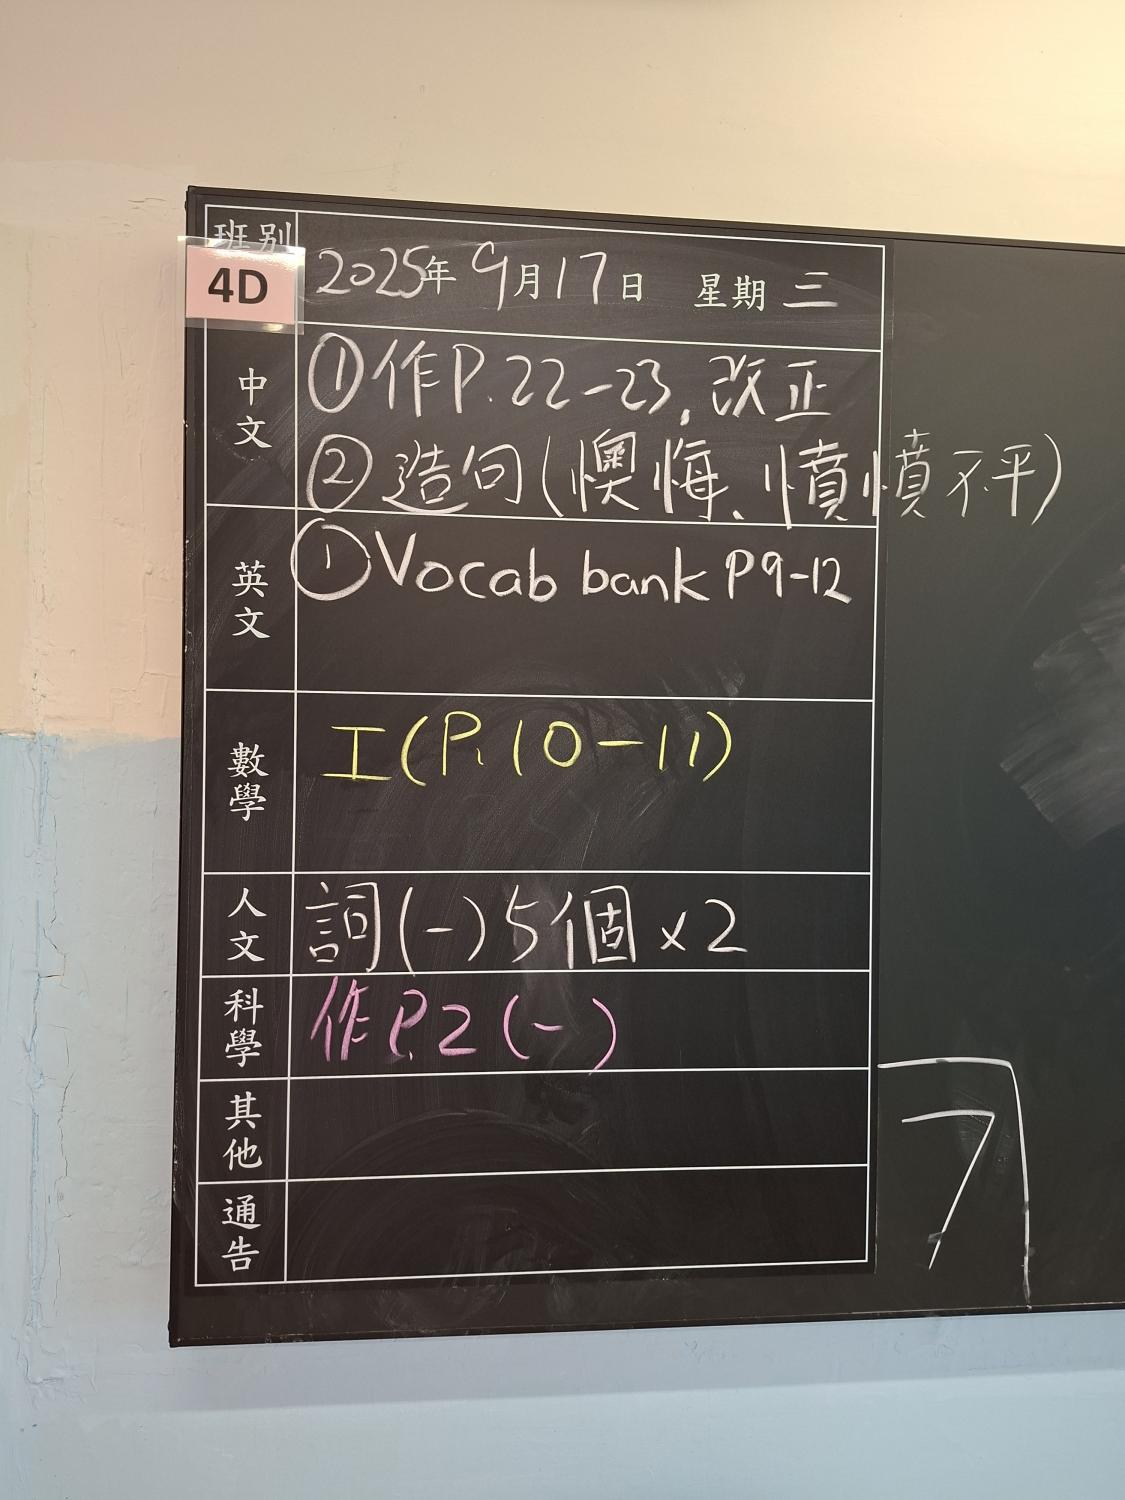 班別
4D
2025年9月17日 星期三
中文
①作P.22-23,改正
②造句(懊悔、憤憤不平)
英文
①Vocab bank P9-12
數學
工(P.10-11)
人文
詞(一)5個×2
科學
作P.2(一)
其他
通告
7